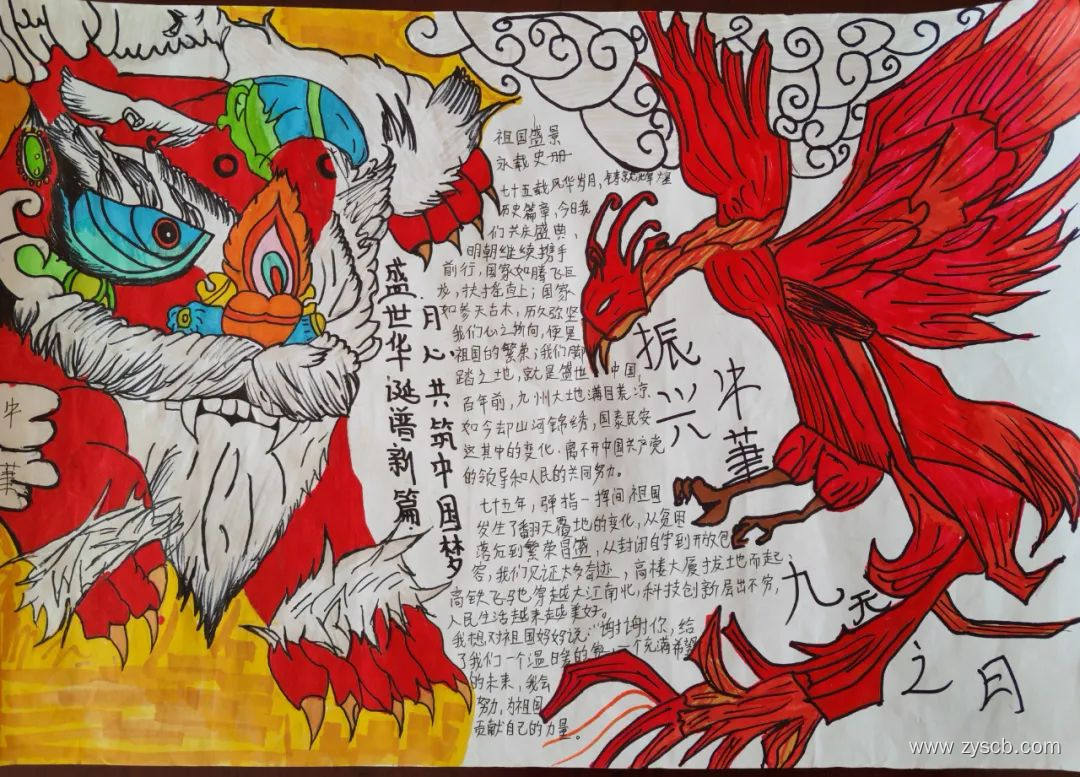 盛世华诞谱新篇
月心共筑中国梦
祖国盛景
永载史册
七十五载风华岁月,铸就辉煌
历史篇章,今日我
们共庆盛典,
明朝继续携手
前行,国家如腾飞巨
龙,扶摇直上;国家
如参天古木,历久弥坚
我们心之所向,便是
祖国的繁荣;我们脚
踏之地,就是盛世中国,
百年前,九州大地满目荒凉
如今却山河锦绣,国泰民安
这其中的变化.离不开中国共产党
的领导和人民的共同努力。
七十五年,弹指一挥间祖国
发生了翻天覆地的变化,从贫困
落后到繁荣昌盛,从封闭自守到开放包
容,我们见证太多奇迹,高楼大厦拔地而起;
高铁飞驰穿越大江南北,科技创新层出不穷,
人民生活越来越美好。
我想对祖国好好说:“谢谢你,给
了我们一个温暖的家,一个充满希望
的未来,我会
努力,为祖国
贡献自己的力量。
振兴
中華
九天
之日
中
華
www.zyscb.com